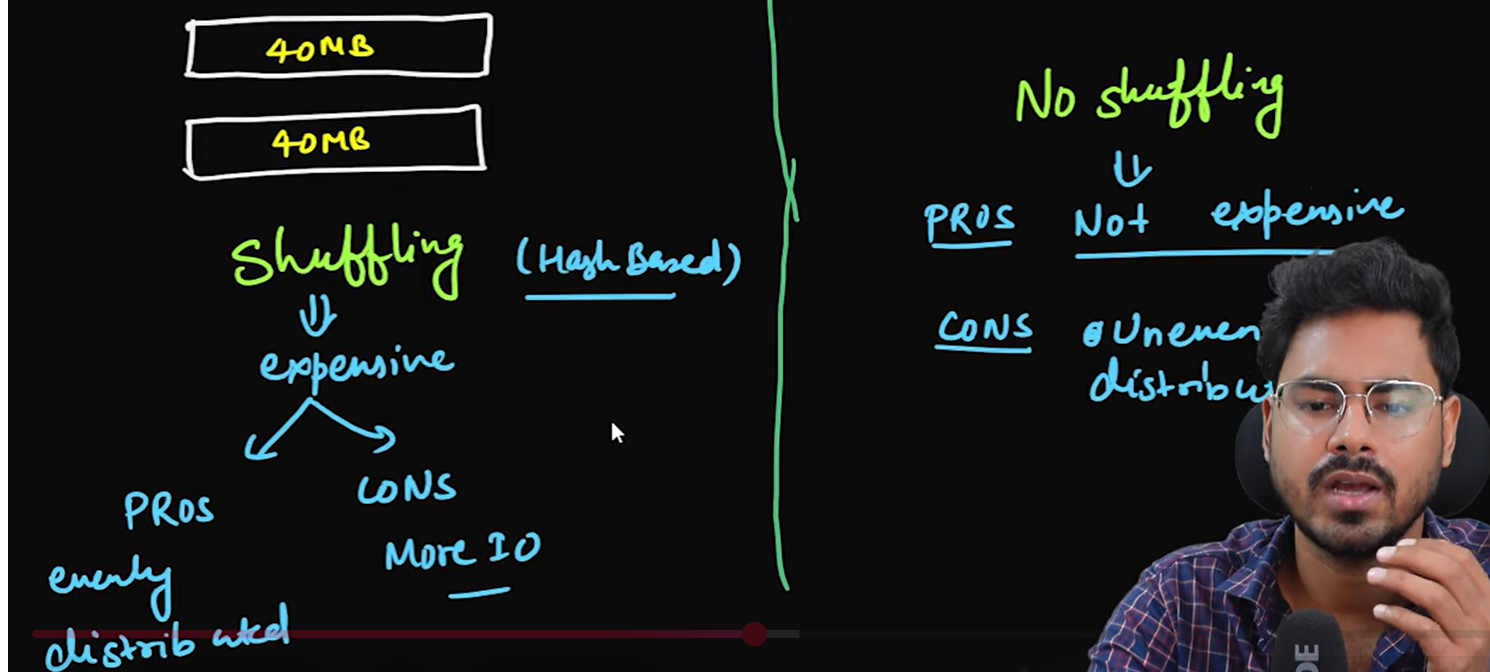 40MB
40MB
Shuffling (Hash Based)
expensive
PROS
CONS
evenly
distributed
More IO
No shuffling
PROS Not expensive
CONS Uneven
distribut
DE